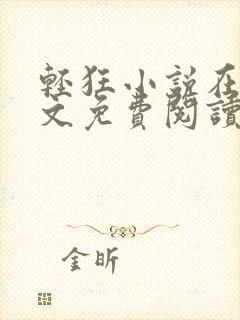 輕狂小說在
文免費閱讀
金昕